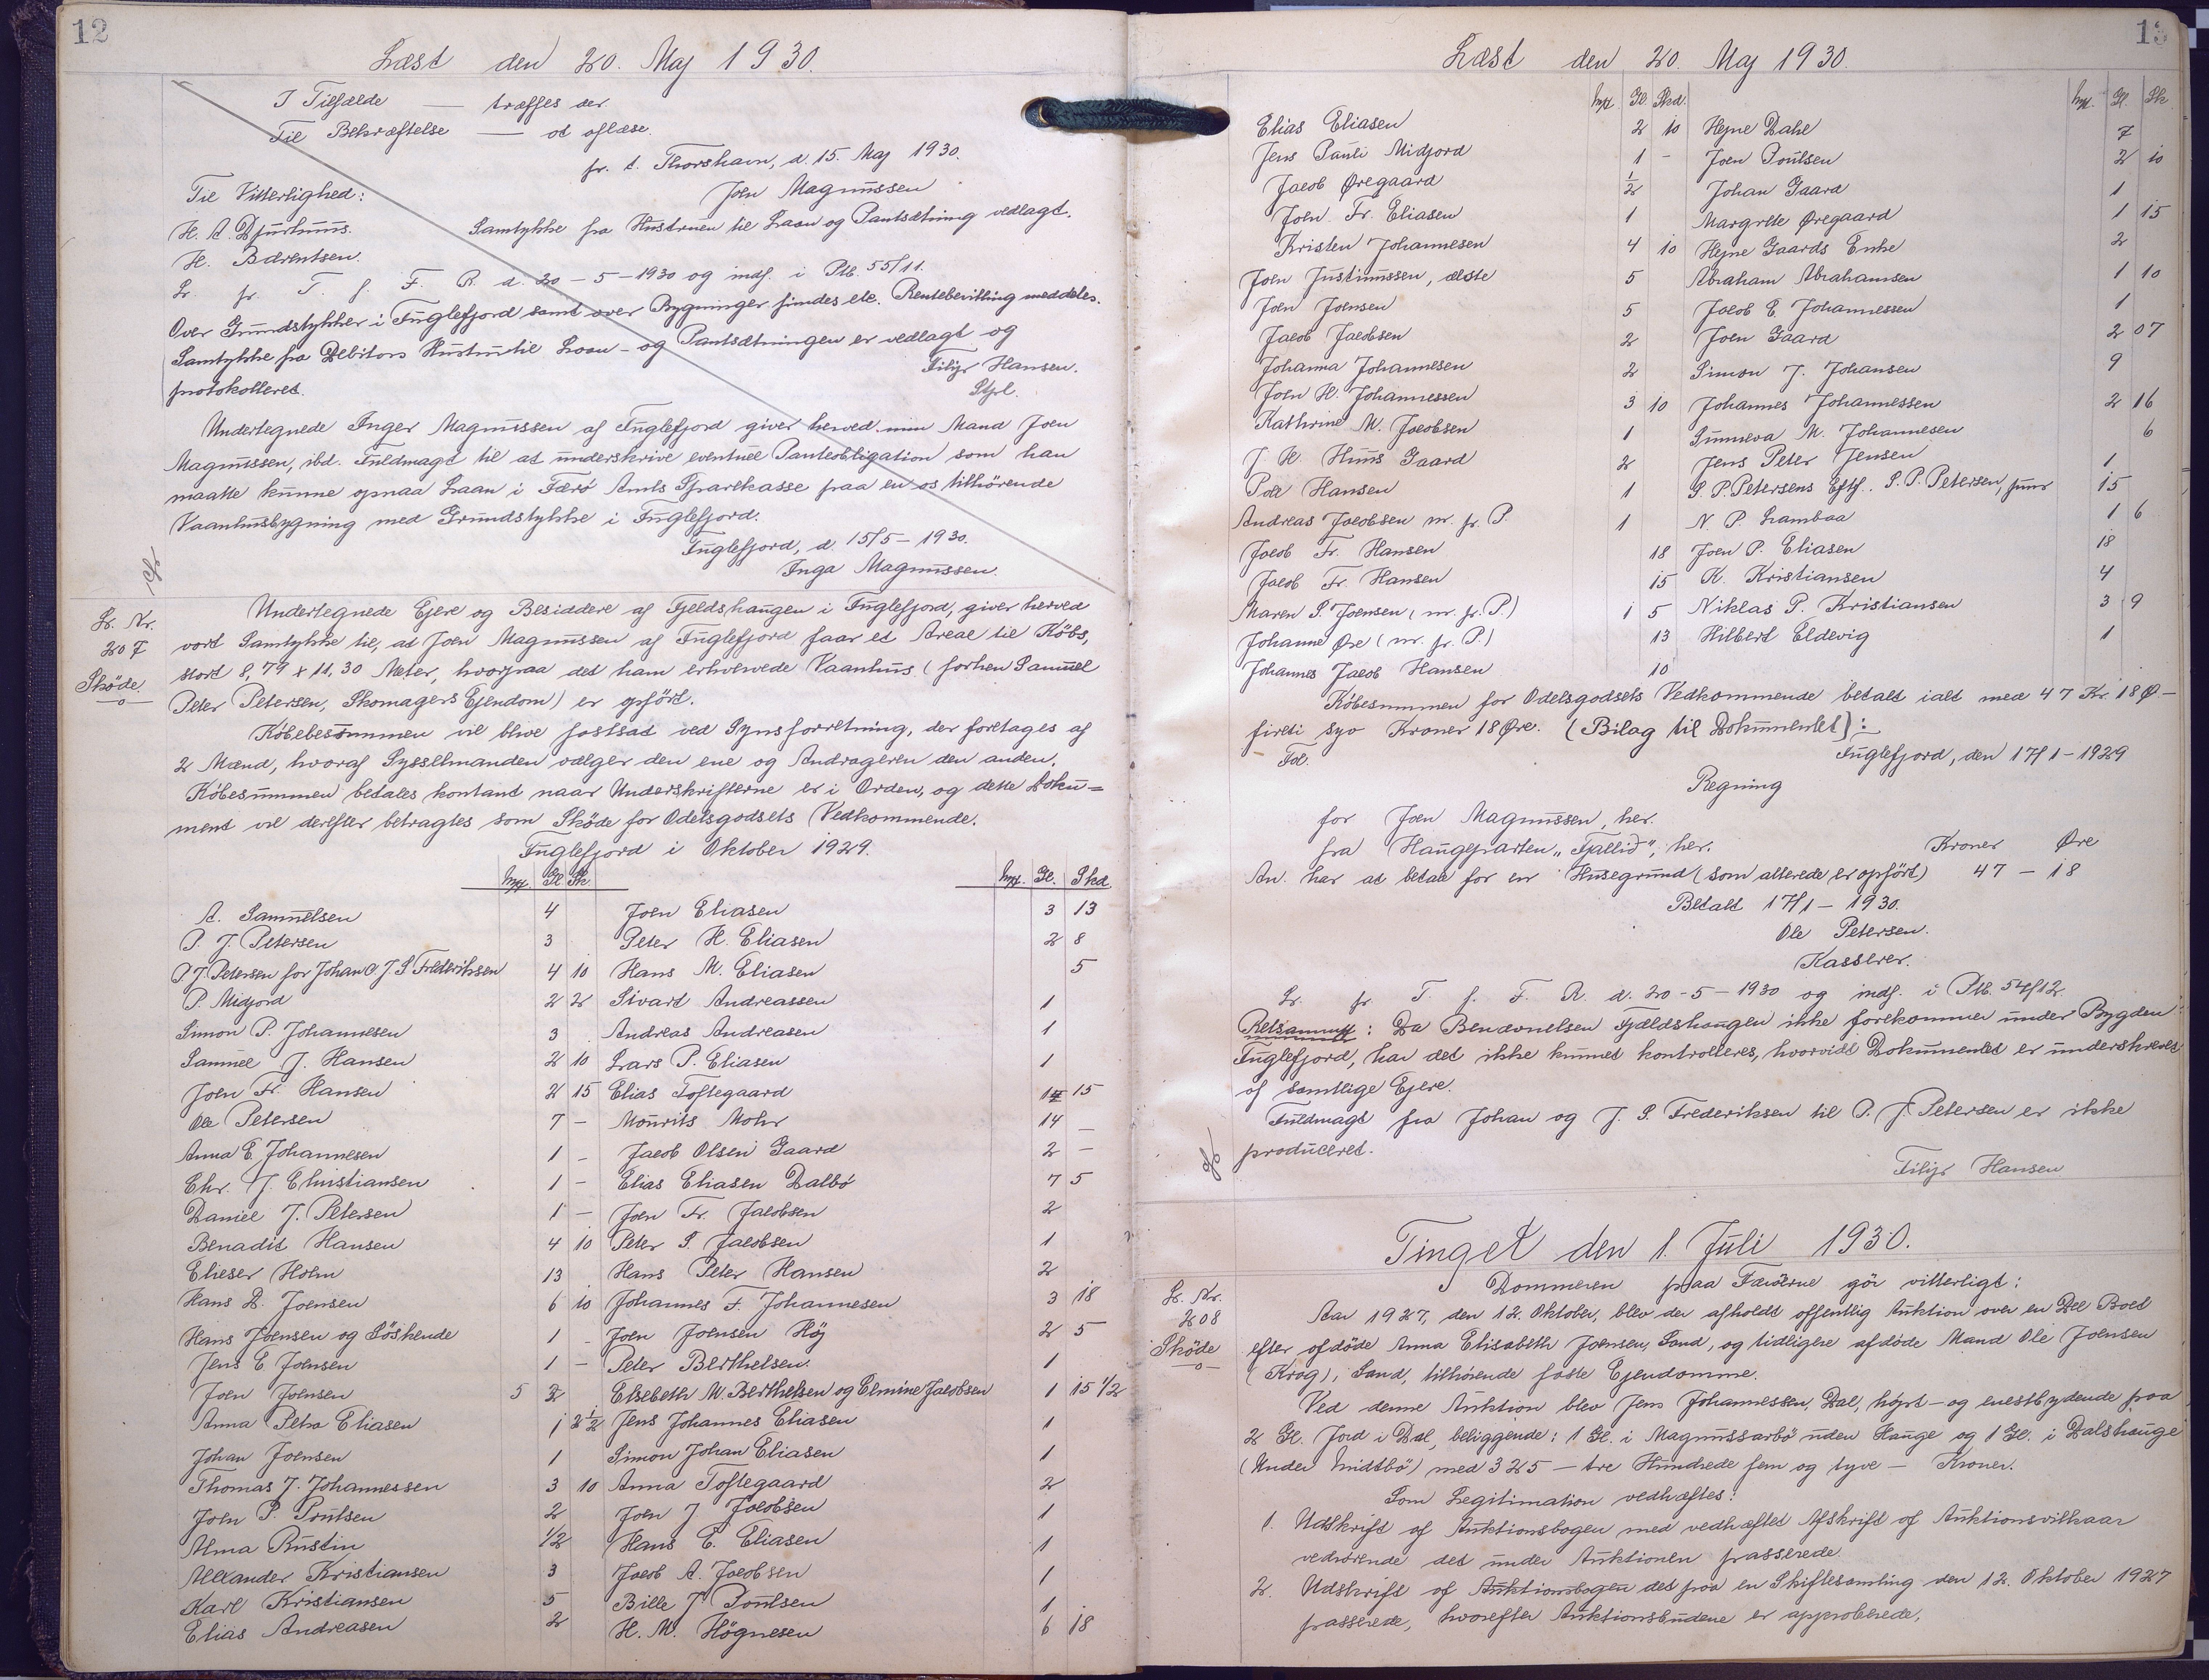 12
Læst den 20. Maj 1930.
I Tilfælde — træffes der.
Til Bekræftelse — at oflæse.
pr. t. Thorshavn, d. 15. Maj 1930.
Til Vitterlighed: Joen Magnussen
H. A. Djurhuus. Samtykke fra Hustruen til Laan og Pantsætning vedlagt.
H. Bærentsen.
L. pr. T. f. F. R. d. 20-5-1930 og indf. i Ptb. 55/11.
Over Grundstykker i Fuglefjord samt over Bygninger findes etc. Rentebevilling meddeles.
Samtykke fra Debitors Hustru til Laan- og Pantsætningen er vedlagt og
protokolleret. Filip Hansen.
Stpl.
Undertegnede Inger Magnussen af Fuglefjord giver herved min Mand Joen
Magnussen, ibd. Fuldmagt til at underskrive eventuel Panteobligation som han
maatte kunne opnaa Laan i Færö Amts Sparekasse paa en os tilhörende
Vaanhusbygning med Grundstykke i Fuglefjord.
Fuglefjord, d. 15/5-1930.
Inga Magnussen.
L. Nr.
207
Sköde.
Undertegnede Ejere og Besiddere af Fjeldshaugen i Fuglefjord, giver herved
vort Samtykke til, at Joen Magnussen af Fuglefjord faar et Areal til Köbs,
stort 8,79 x 11,30 Meter, hvorpaa det ham erhvervede Vaanhus (forhen Samuel
Peter Petersen, Skomagers Ejendom) er opfört.
Köbebesummen vil blive fastsat ved Synsforretning, der foretages af
2 Mænd, hvoraf Sysselmanden vælger den ene og Andrageren den anden.
Köbesummen betales kontant naar Underskrifterne er i Orden, og dette Doku=
ment vil derefter betragtes som Sköde for Odelsgodsets Vedkommende.
Fuglefjord i Oktober 1929.
Gl Sk. Gl. Skd.
A. Samuelsen 4 Joen Eliasen 3 13
P. J. Petersen 3 Peter H. Eliasen 2 8
P J. Petersen for Johan & J. S Frederiksen 4 10 Hans M. Eliasen 5
P. Midjord 2 2 Sivart Andreassen 1
Simon P. Johannesen 3 Andreas Andreasen 1
Samuel J. Hansen 2 10 Lars P. Eliasen 1
Joen Fr. Hansen 2 15 Elias Toftegaard 15
Ole Petersen 7 - Mourits Mohr 14 -
Anna E. Johannesen 1 - Jacob Olsen Gaard 2 -
Chr. J. Christiansen 1 - Elias Eliasen Dalbö 7 5
Daniel J. Petersen 1 - Joen Fr. Jacobsen 2
Benadit Hansen 4 10 Peter S. Jacobsen 1
Elieser Holm 13 Hans Peter Hansen 2
Hans D. Joensen 6 10 Johannes F. Johannesen 3 18
Hans Joensen og Söskende 1 - Joen Joensen Höj 2 5
Jens E Joensen 1 - Peter Berthelsen. 1
Joen Joensen 5 2 Elsebeth M. Berthelsen og Elmine Jacobsen 1 15 1/2
Anna Petra Eliasen 1 2 1/2 Jens Johannes Eliasen 1
Johan Joensen 1 Simon Johan Eliasen 1
Thomas J. Johannessen 3 10 Anna Toftegaard 2
Joen P. Poulsen 2 Joen J Jacobsen 1
Alma Rustin 1/2 Hans E. Eliasen 1
Alexander Kristiansen 3 Jacob A. Jacobsen 1
Karl Kristiansen 5 Bille J Poulsen 1
Elias Andreasen 2 H. M. Högnesen 6 18
13
Læst den 20. Maj 1930.
Gl. Skd. Gl. Sk.
Elias Eliasen 2 10 Hejne Dahl 7
Jens Pauli Midjord 1 - Joen Poulsen 2 10
Jacob Øregaard 1/2 Johan Gaard 1
Joen Fr. Eliasen 1 Margrete Øregaard 1 15
Kristen Johannesen 4 10 Hejne Gaards Enke 2
Joen Justinussen, ælste 5 Abraham Abrahamsen 1 10
Joen Joensen 5 Jacob E. Johannessen 1
Jacob Jacobsen 2 Joen Gaard 2 07
Johanna Johannesen 2 Simon J. Johansen 9
Joen H. Johannessen 3 10 Johannes Johannessen 2 16
Kathrine M. Jacobsen 1 Sunneva M. Johannesen 6
J. H. Huus Gaard 2 Jens Peter Jensen 1
Poul Hansen 1 S. P. Petersens Eftf. S. P. Petersen, junr 15
Andreas Jacobsen m. fr. P. 1 N. P. Lambaa 1 6
Jacob Fr. Hansen 18 Joen P. Eliasen 18
Jacob Fr. Hansen 15 K. Kristiansen 4
Maren S. Joensen (m. fr. P.) 1 5 Niklas P. Kristiansen 3 9
Johanne Øre (m. fr. P.) 13 Hilbert Eldevig 1
Johannes Jacob Hansen 10
Köbesummen for Odelsgodsets Vedkommende betalt ialt med 47 Kr. 18 Ø —
fireti syv Kroner 18 Øre. (Bilag til Dokumentet):
Fol. Fuglefjord, den 17/1-1929
Regning
for Joen Magnussen, her.
fra Haugeparten „Fjallid", her. Kroner Øre
An. har at betale for en Husegrund (som allerede er opfört) 47 - 18
Betalt 17/1-1930.
Ole Petersen.
Kasserer.
L. pr. T. f. F. R. d. 20-5-1930 og indf. i Ptb. 54/12.
Retsanmk: Da Benævnelsen Fjældshaugen ikke forekommer under Bygden
Fuglefjord, har det ikke kunnet kontrolleres, hvorvidt Dokumentet er underskrevet
af samtlige Ejere.
Fuldmagt fra Johan og J. S. Frederiksen til P. J. Petersen er ikke
produceret.
Filip Hansen
Tinget den 1. Juli 1930.
L. Nr.
208
Sköde
Dommeren paa Færöerne gör vitterligt:
Aar 1927, den 12. Oktober, blev der afholdt offentlig Auktion over en Del Boet
efter afdöde Anna Elisabeth Joensen, Sand, og tidligere afdöde Mand Ole Joensen
(Krog), Sand, tilhörende faste Ejendomme.
Ved denne Auktion blev Jens Johannessen, Dal, højst- og enestbydende paa
2 Gl. Jord i Dal, beliggende: 1 Gl. i Magnussarbö uden Hauge og 1 Gl. i Dalshauge
(Under Midtbö) med 325 — tre Hundrede fem og tyve — Kroner.
Som Legitimation vedhæftes:
1. Udskrift af Auktionsbogen med vedhæftet Afskrift af Auktionsvilkaar
vedrörende det under Auktionen passerede.
2. Udskrift af Auktionsbogen det paa en Skiftesamling den 12. Oktober 1927
passerede, hvorefter Auktionsbudene er approberede.